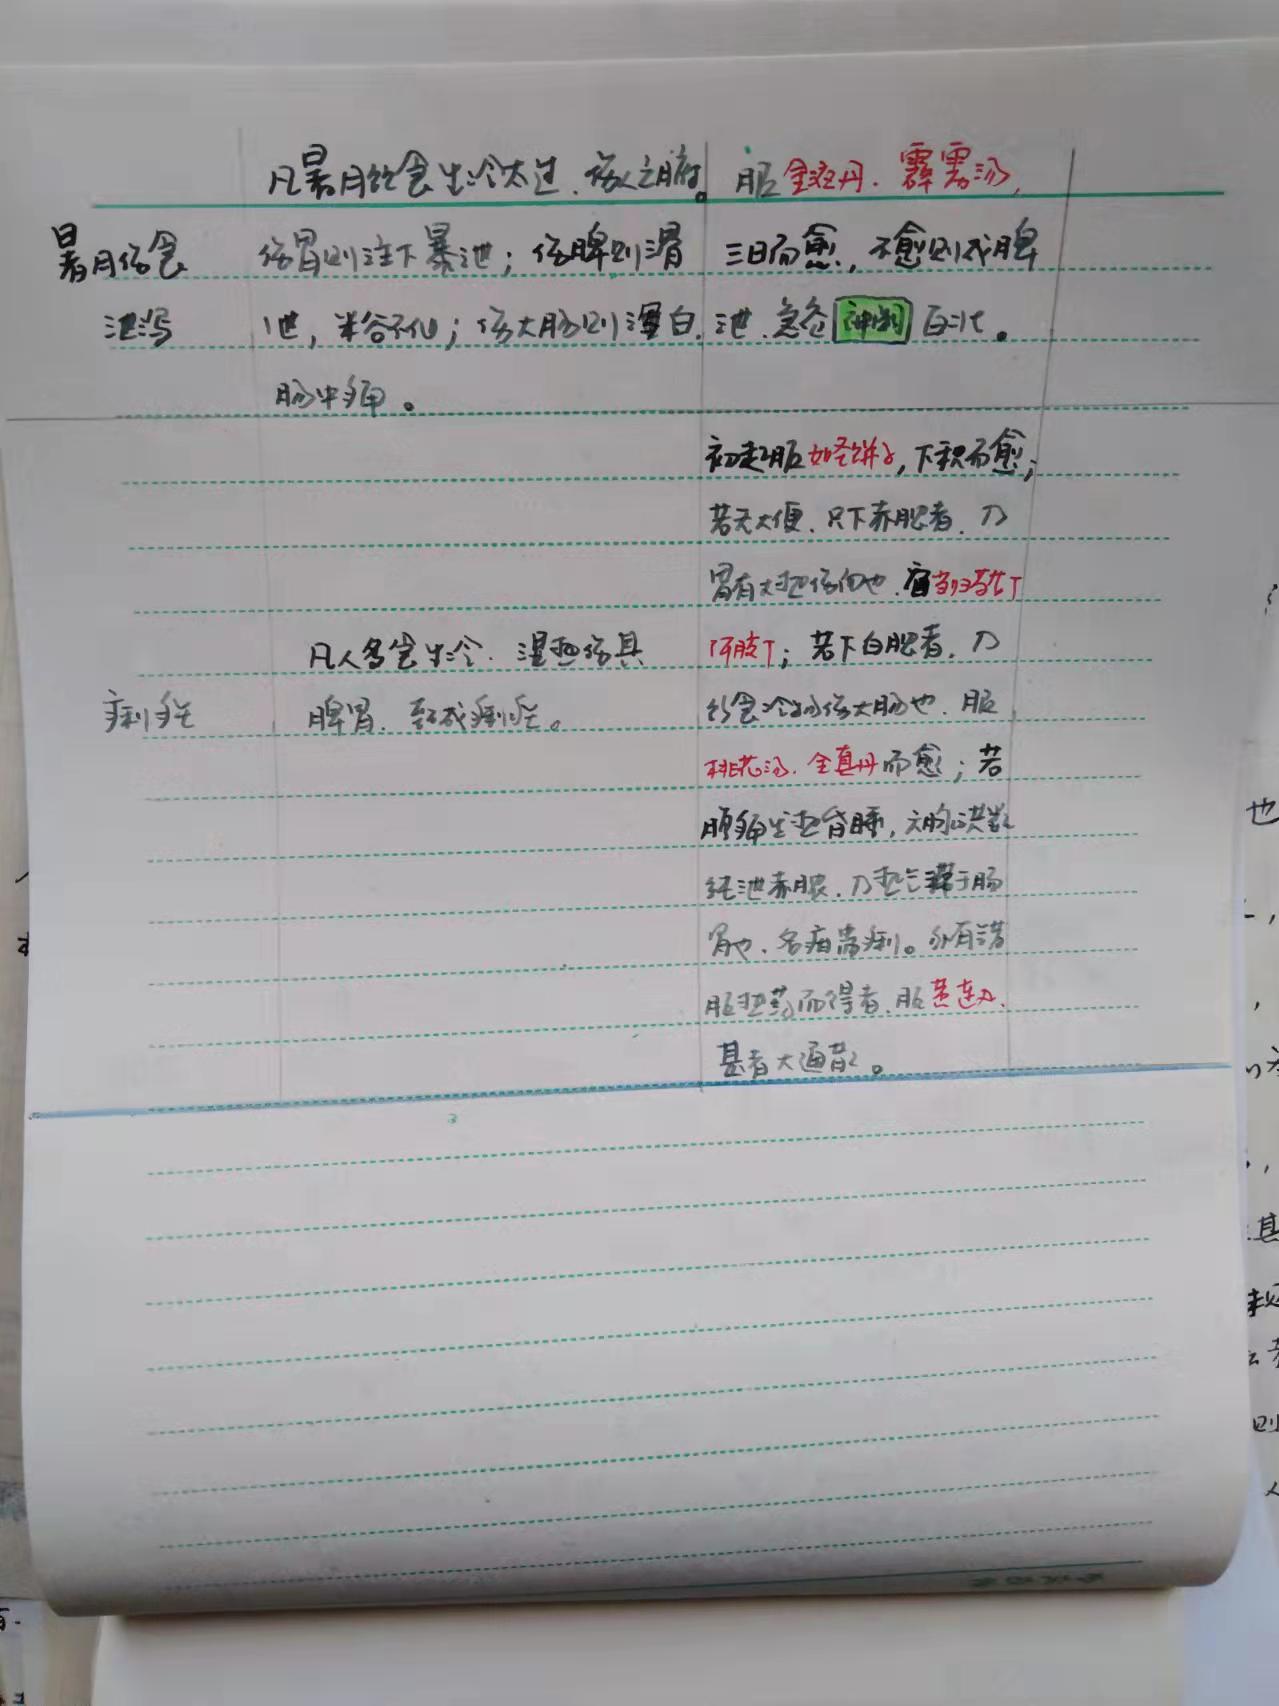 凡暑月饮食生冷太过，伤人六腑。
伤胃则注下暴泄；伤脾则滑
泄，米谷不化；伤大肠则泻白，
肠中痛。
暑月伤食
泄泻
服金液丹、霹雳汤，
三日而愈，不愈则成脾
泄，急灸神阙百壮。
凡人多食生冷，湿热伤其
脾胃，致成痢疾。
痢疾
初起服如圣饼子，下积而愈；
若无大便，只下赤脓者，乃
胃有大热伤血也，宜当归芍药丁
阿胶丁；若下白脓者，乃
饮食冷物伤大肠也，服
桃花汤、全真丹而愈；若
腹痛发热昏睡，六脉洪数
纯泄赤脓，乃热气滞于肠
胃也，名疳蛊痢。亦有误
服热药而得者，服黄连丸，
甚者大通散。